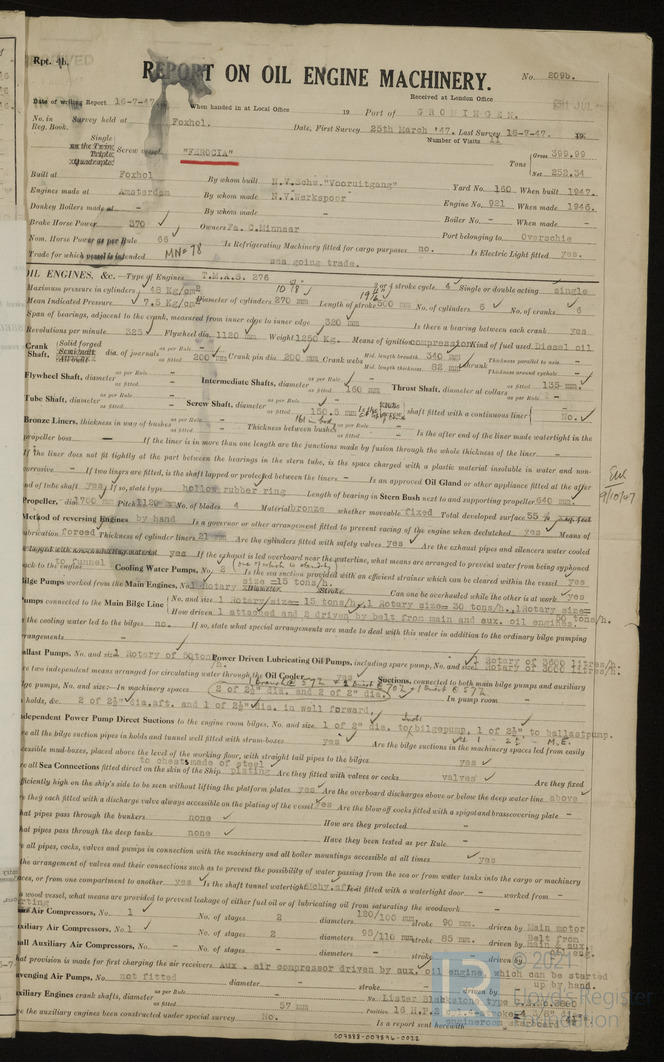 Rpt. 4b.
REPORT ON OIL ENGINE MACHINERY.
No. 2095.
Received at London Office
Date of writing Report 16-7-47. When handed in at Local Office 19 Port of GRONINGEN.
No. in Reg. Book. Survey held at Foxhol. Date, First Survey 25th March '47. Last Survey 16-7-47. 19
Number of Visits 11
Single on the Twin Triple Quadruple Screw vessel "FEROCIA" Tons Gross 399.99 Net 252.34
Built at Foxhol By whom built N.V.Schw."Vooruitgang" Yard No. 160 When built 1947.
Engines made at Amsterdam By whom made N.V.Werkspoor Engine No. 921 When made 1946.
Donkey Boilers made at - By whom made - Boiler No. - When made -
Brake Horse Power 370 Owners Fa. C.Minnaar Port belonging to Overschie
Nom. Horse Power as per Rule 66 Is Refrigerating Machinery fitted for cargo purposes no. Is Electric Light fitted yes.
Trade for which vessel is intended MNo 78 sea going trade.
OIL ENGINES, &c. Type of Engines T.M.A.S. 276 2 or 4 stroke cycle 4 Single or double acting single
Maximum pressure in cylinders 48 Kg/cm2 Diameter of cylinders 270 mm Length of stroke 500 mm No. of cylinders 6 No. of cranks 6
Mean Indicated Pressure 7.5 Kg/cm2
Span of bearings, adjacent to the crank, measured from inner edge to inner edge 320 mm Is there a bearing between each crank yes
Revolutions per minute 325 Flywheel dia. 1120 mm Weight 1250 Kg. Means of ignition compression Kind of fuel used Diesel oil
Crank Shaft, Solid forged dia. of journals as per Rule - as fitted 200 mm Crank pin dia 200 mm Crank webs Mid. length breadth 340 mm Mid. length thickness 82 mm shrunk Thickness parallel to axis - Thickness around eyehole -
Flywheel Shaft, diameter as per Rule - as fitted - Intermediate Shafts, diameter as per Rule - as fitted 160 mm Thrust Shaft, diameter at collars as per Rule - as fitted 135 mm.
Tube Shaft, diameter as per Rule - as fitted - Screw Shaft, diameter as per Rule - as fitted 150.5 mm Is the screw shaft fitted with a continuous liner No.
Bronze Liners, thickness in way of bushes as per Rule - as fitted - Thickness between bushes as per Rule - as fitted - Is the after end of the liner made watertight in the
propeller boss - If the liner is in more than one length are the junctions made by fusion through the whole length of the liner -
If the liner does not fit tightly at the part between the bearings in the stern tube, is the space charged with a plastic material insoluble in water and non-
corrosive - If two liners are fitted, is the shaft lapped or protected between the liners - Is an approved Oil Gland or other appliance fitted at the after
end of tube shaft yes If so, state type hollow rubber ring Length of bearing in Stern Bush next to and supporting propeller 640 mm.
Propeller, dia 1700 mm Pitch 1120 mm No. of blades 4 Material bronze whether moveable fixed Total developed surface 55 % sq. feet
Method of reversing Engines by hand Is a governor or other arrangement fitted to prevent racing of the engine when declutched yes Means of
lubrication forced Thickness of cylinder liners 21 mm Are the cylinders fitted with safety valves yes Are the exhaust pipes and silencers water cooled
yes If the exhaust is led overboard near the waterline, what means are arranged to prevent water from being syphoned
back to the engine to funnel Cooling Water Pumps, No. 2 Is the sea suction provided with an efficient strainer which can be cleared within the vessel yes
Bilge Pumps worked from the Main Engines, No. 1 Rotary size = 15 tons/h. Can one be overhauled while the other is at work yes
Pumps connected to the Main Bilge Line No. and size 1 Rotary size= 15 tons/h., 1 Rotary size= 30 tons/h., 1 Rotary size= 50 tons/h.
How driven 1 attached and 2 driven by belt from main and aux. oil engines.
the cooling water led to the bilges no. If so, state what special arrangements are made to deal with this water in addition to the ordinary bilge pumping
arrangements -
Ballast Pumps, No. and size 1 Rotary of 50 tons/h. Power Driven Lubricating Oil Pumps, including spare pump, No. and size 1 Rotary of 3600 litres/h.
1 Rotary of 3000 litres/h.
are two independent means arranged for circulating water through the Oil Cooler yes Suctions, connected to both main bilge pumps and auxiliary
bilge pumps, No. and size:—In machinery spaces 2 of 2½" dia. and 2 of 2" dia. In pump room -
In holds, &c. 2 of 2½" dia.aft. and 1 of 2½" dia. in well forward.
Independent Power Pump Direct Suctions to the engine room bilges, No. and size 1 of 2" dia. to bilgepump, 1 of 2½" to ballastpump.
Are all the bilge suction pipes in holds and tunnel well fitted with strum-boxes yes Are the bilge suctions in the machinery spaces led from easily
accessible mud-boxes, placed above the level of the working floor, with straight tail pipes to the bilges yes
Are all Sea Connections fitted direct on the skin of the Ship to chests made of steel plating Are they fitted with valves or cocks valves Are they fixed
sufficiently high on the ship's side to be seen without lifting the platform plates yes Are the overboard discharges above or below the deep water line above
Are they each fitted with a discharge valve always accessible on the plating of the vessel yes Are the blow off cocks fitted with a spigot and brass covering plate -
What pipes pass through the bunkers none How are they protected -
What pipes pass through the deep tanks none Have they been tested as per Rule -
Are all pipes, cocks, valves and pumps in connection with the machinery and all boiler mountings accessible at all times yes
Is the arrangement of valves and their connections such as to prevent the possibility of water passing from the sea or from water tanks into the cargo or machinery
spaces, or from one compartment to another yes Is the shaft tunnel watertight Mchy.aft Is it fitted with a watertight door - worked from -
a wood vessel, what means are provided to prevent leakage of either fuel oil or of lubricating oil from saturating the woodwork -
Main Air Compressors, No. 1 No. of stages 2 diameters 120/100 mm. stroke 90 mm. driven by Main motor
Auxiliary Air Compressors, No. 1 No. of stages 2 diameters 95/110 mm stroke 85 mm. driven by Belt from main & aux. eng.
Small Auxiliary Air Compressors, No. - No. of stages - diameters - stroke - driven by
What provision is made for first charging the air receivers Aux. air compressor driven by aux. oil engine, which can be started up by hand.
Scavenging Air Pumps, No. not fitted diameter - stroke - driven by -
Auxiliary Engines crank shafts, diameter as per Rule - as fitted 57 mm No. Lister Blackstone type
Position 16 H.P. engineroom starboard
Have the auxiliary engines been constructed under special survey No. Is a report sent herewith
009888-009896-0022
© 2021
Lloyd's Register Foundation